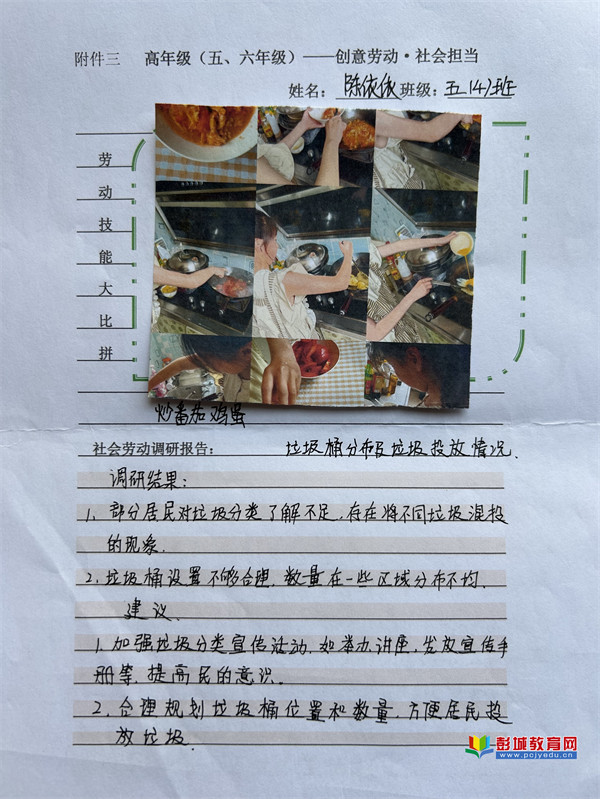 附件三 高年级（五、六年级）——创意劳动·社会担当
姓名：陈依依 班级：五（4）班
劳
动
技
能
大
比
拼
炒番茄鸡蛋
社会劳动调研报告： 垃圾桶分布及垃圾投放情况.
调研结果：
1. 部分居民对垃圾分类了解不足,存在将不同垃圾混投
的现象.
2. 垃圾桶设置不够合理,数量在一些区域分布不均.
建议.
1. 加强垃圾分类宣传活动,如举办讲座,发放宣传手
册等,提高民的意识。
2. 合理规划垃圾桶位置和数量,方便居民投
放垃圾.
彭城教育网
www.pcjyedu.cn